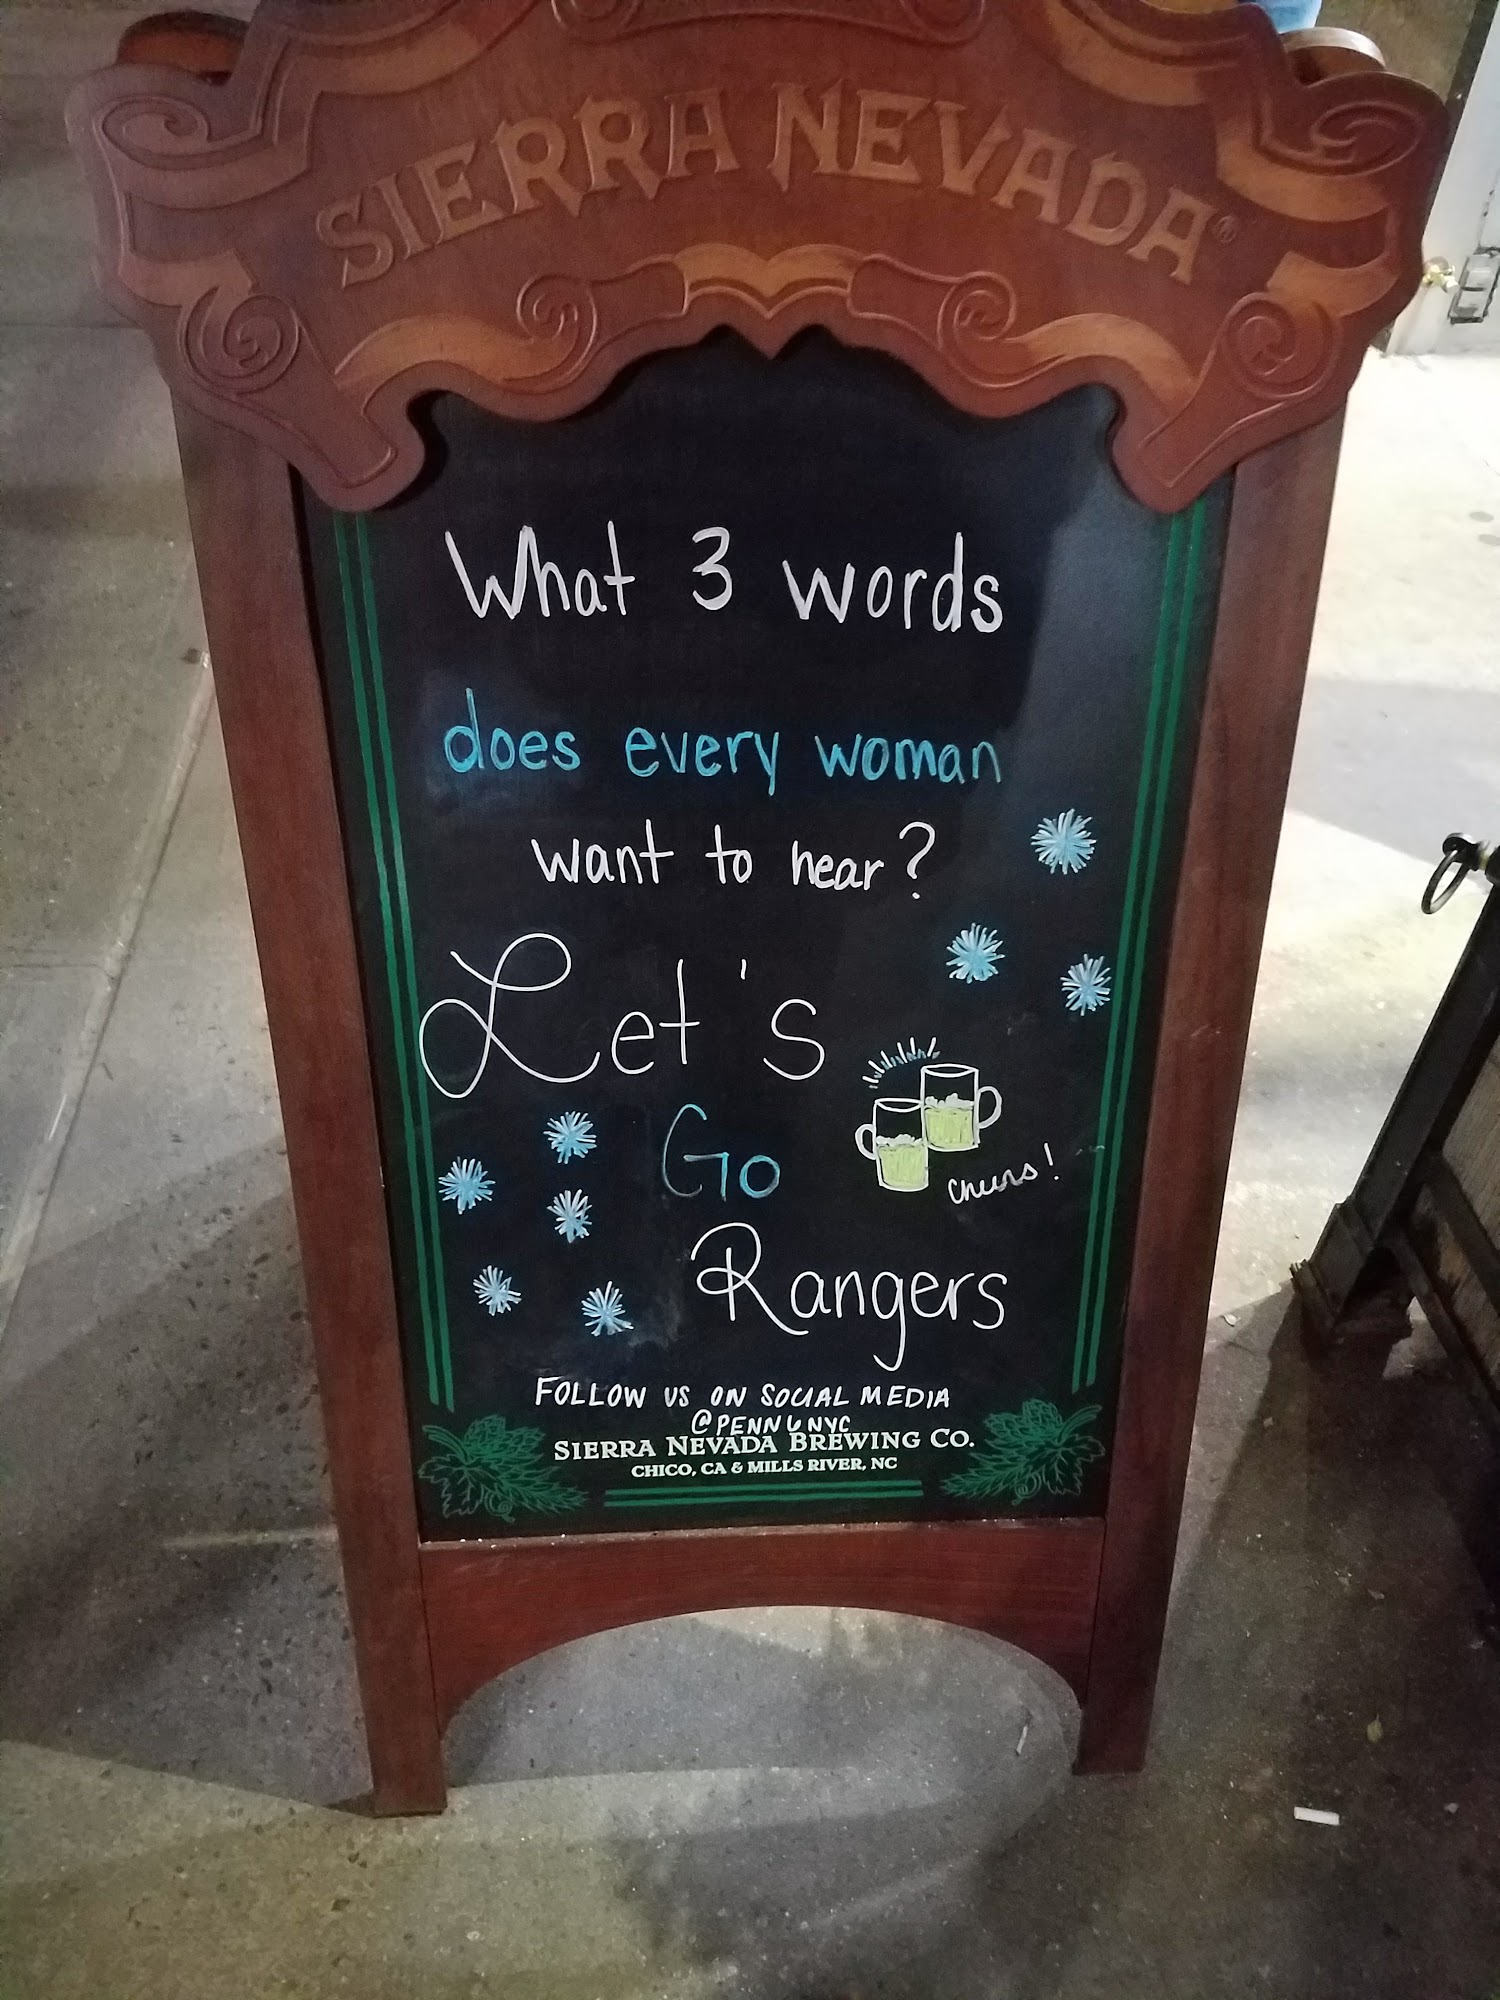 SIERRA NEVADA®
What 3 words
does every woman
want to hear?
Let's
Go
cheers!
Rangers
FOLLOW US ON SOCIAL MEDIA
@PENN6NYC
SIERRA NEVADA BREWING CO.
CHICO, CA & MILLS RIVER, NC